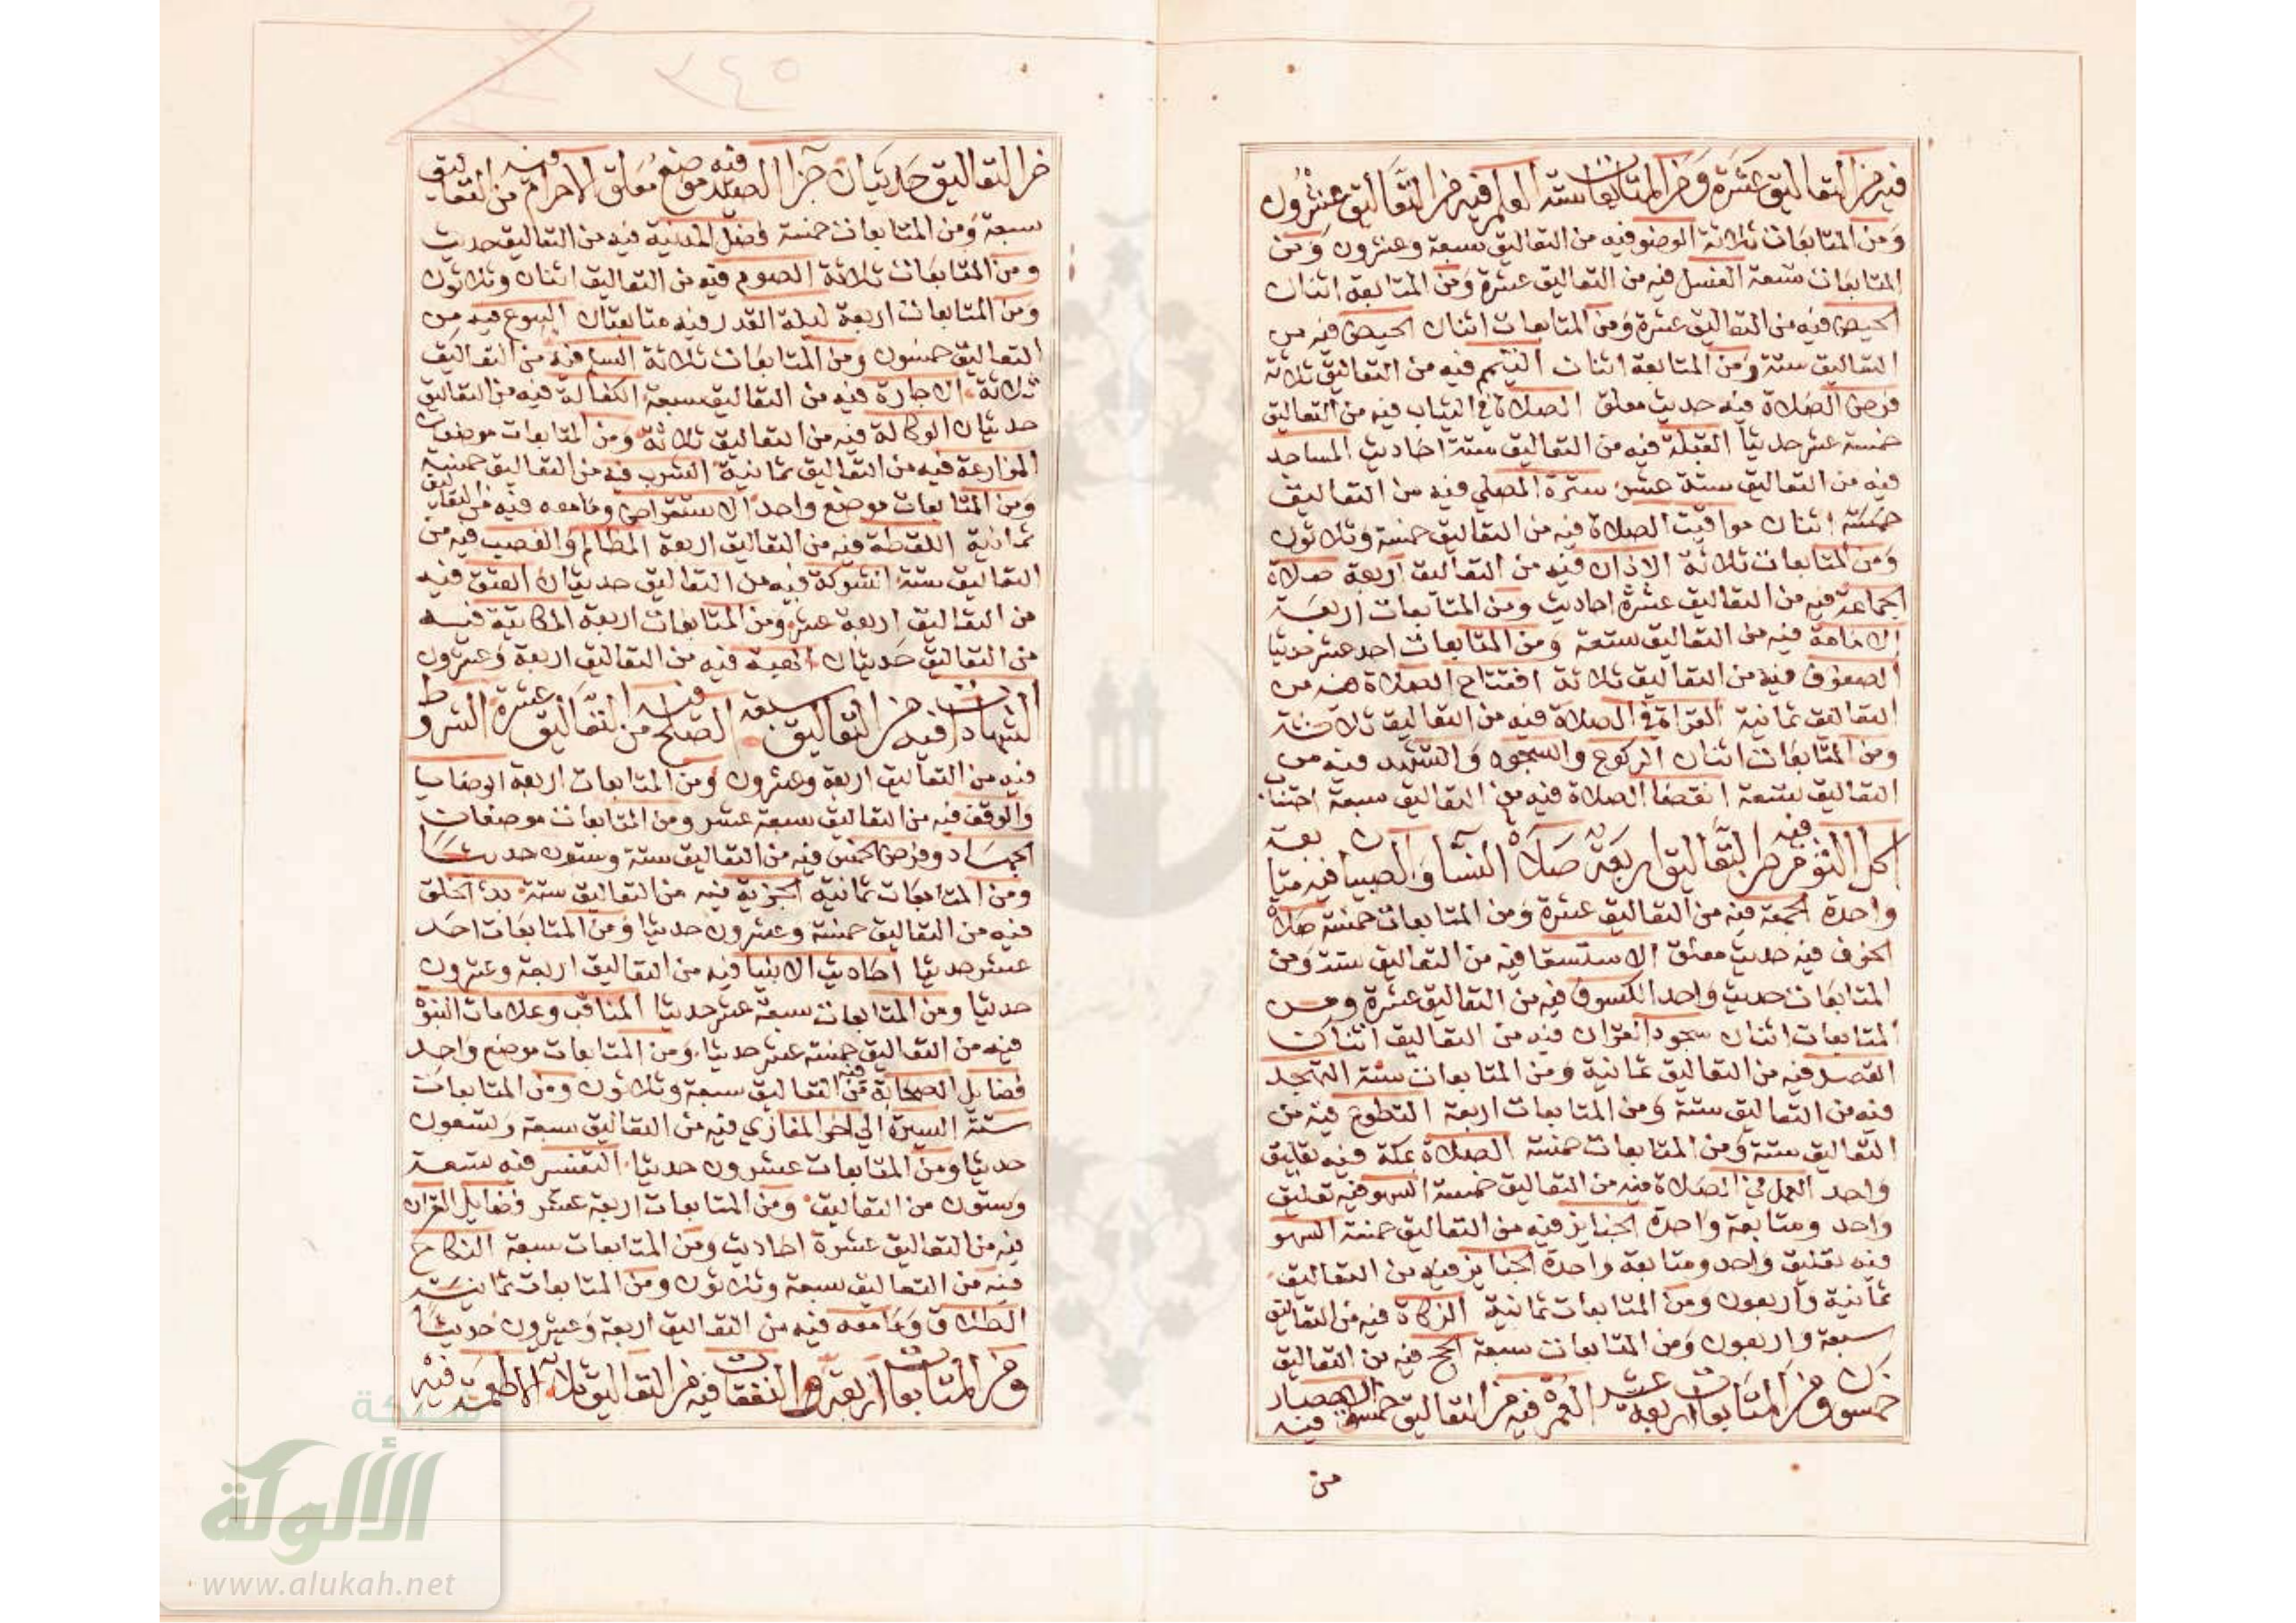 فيه من التعاليق عشرة ومن المتابعات ستة العلم فيه من التعاليق عشرون
ومن المتابعات ثلاثة الوضو فيه من التعاليق سبعة وعشرون ومن
المتابعات تسعة الغسل فيه من التعاليق عشرة ومن المتابعة اثنان
الحيض فيه من التعاليق عشرة ومن المتابعات اثنان الحيض فيه من
التعاليق ستة ومن المتابعة اثنان التيمم فيه من التعاليق ثلاثة
فرض الصلاة فيه حديث معلق الصلاة في الثياب فيه من التعاليق
خمسة عشر حديثا القبلة فيه من التعاليق ستة احاديث المساجد
فيه من التعاليق ستة عشر سترة المصلي فيه من التعاليق
خمسة اثنان مواقيت الصلاة فيه من التعاليق خمسة وثلاثون
ومن المتابعات ثلاثة الاذان فيه من التعاليق اربعة صلاة
الجماعة فيه من التعاليق عشرة احاديث ومن المتابعات اربعة
الامامة فيه من التعاليق ستعة ومن المتابعات احد عشر حديثا
الصفوف فيه من التعاليق ثلاثة افتتاح الصلاة فيه من
التعاليق ثمانية القراة في الصلاة فيه من التعاليق ثلاثة
ومن المتابعات اثنان الركوع والسجود والتشهد فيه من
التعاليق تسعة انقضا الصلاة فيه من التعاليق سبعة اجتناب
اكل الثوم فيه من التعاليق اربعة صلاة النسا والصبيان فيه متابعة
واحدة الجمعة فيه من التعاليق عشرة ومن المتابعات خمسة صلاة
الخوف فيه حديث معلق الاستسقا فيه من التعاليق ستة ومن
المتابعات حديث واحد الكسوف فيه من التعاليق عشرة ومن
المتابعات اثنان سجود القران فيه من التعاليق اثنان
القصر فيه من التعاليق ثمانية ومن المتابعات ستة التهجد
فيه من التعاليق ستة ومن المتابعات اربعة التطوع فيه من
التعاليق ستة ومن المتابعات خمسة الصلاة بمكة فيه تعليق
واحد العمل في الصلاة فيه من التعاليق خمسة السهو فيه تعليق
واحد ومتابعة واحدة الجنايز فيه من التعاليق خمسة السهو
فيه تعليق واحد ومتابعة واحدة الجنايز فيه من التعاليق
ثمانية واربعون ومن المتابعات ثمانية الزكاة فيه من التعاليق
سبعة واربعون ومن المتابعات سبعة الحج فيه من التعاليق
خمسون ومن المتابعات اربعة عشر العمرة فيه من التعاليق خمسة الاحصار فيه
من
٢٤٥
من التعاليق حديثان جزا الصيد فيه موضع معلق الاحرام فيه من التعاليق
سبعة ومن المتابعات خمسة فضل المدينة فيه من التعاليق حديث
ومن المتابعات ثلاثة الصوم فيه من التعاليق اثنان وثلاثون
ومن المتابعات اربعة ليلة القدر فيه متابعتان البيوع فيه من
التعاليق خمسون ومن المتابعات ثلاثة السلم فيه من التعاليق
ثلاثة الاجارة فيه من التعاليق سبعة الكفالة فيه من التعاليق
حديثان الوكالة فيه من التعاليق ثلاثة ومن المتابعات موضعان
المزارعة فيه من التعاليق ثمانية الشرب فيه من التعاليق خمسة
ومن المتابعات موضع واحد الاستقراض ومامعه فيه من التعاليق
ثمانية اللقطة فيه من التعاليق اربعة المظالم والغصب فيه من
التعاليق ستة الشركة فيه من التعاليق حديثان العتق فيه
من التعاليق اربعة عشر ومن المتابعات اربعة المكاتبة فيه
من التعاليق حديثان الهبة فيه من التعاليق اربعة وعشرون
الشهادات فيه من التعاليق سبعة الصلح فيه من التعاليق عشرة الشروط
فيه من التعاليق اربعة وعشرون ومن المتابعات اربعة الوصايا
والوقف فيه من التعاليق سبعة عشر ومن المتابعات موضعان
الجهاد وفرض الخمس فيه من التعاليق ستة وستون حديثا
ومن المتابعات ثمانية الجزية فيه من التعاليق ستة بدء الخلق
فيه من التعاليق خمسة وعشرون حديثا ومن المتابعات احد
عشر حديثا احاديث الانبيا فيه من التعاليق اربعة وعشرون
حديثا ومن المتابعات سبعة عشر حديثا المناقب وعلامات النبوة
فيه من التعاليق خمسة عشر حديثا ومن المتابعات موضع واحد
فضايل الصحابة فيه من التعاليق سبعة وثلاثون ومن المتابعات
ستة السيرة الي اخر المغازي فيه من التعاليق سبعة وتسعون
حديثا ومن المتابعات عشرون حديثا التفسير فيه تسعة
وستون من التعاليق ومن المتابعات اربعة عشر فضايل القران
فيه من التعاليق عشرة احاديث ومن المتابعات سبعة النكاح
فيه من التعاليق سبعة وثلاثون ومن المتابعات ثمانية
الطلاق ومامعه فيه من التعاليق اربعة وعشرون حديثا
ومن المتابعات اربعة النفقات فيه من التعاليق ثلاثة الاطعمة فيه
شبكة
الألوكة
www.alukah.net